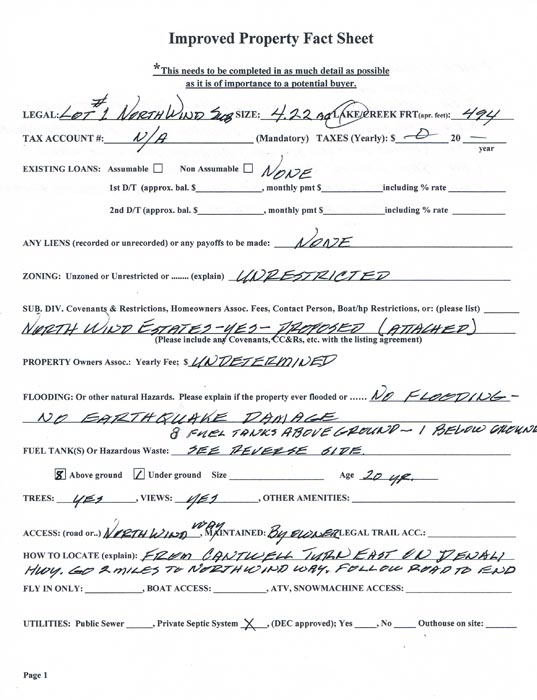 Improved Property Fact Sheet
*This needs to be completed in as much detail as possible
as it is of importance to a potential buyer.
LEGAL: LOT #1 NORTHWIND SUB SIZE: 4.22 AC LAKE/CREEK FRT(apr. feet): 494
TAX ACCOUNT #: N/A (Mandatory) TAXES (Yearly): $ 0 20 —
year
EXISTING LOANS: Assumable ☐ Non Assumable ☐ NONE
1st D/T (approx. bal. $____________, monthly pmt $____________including % rate __________
2nd D/T (approx. bal. $____________, monthly pmt $____________including % rate __________
ANY LIENS (recorded or unrecorded) or any payoffs to be made: NONE
ZONING: Unzoned or Unrestricted or ........ (explain) UNRESTRICTED
SUB. DIV. Covenants & Restrictions, Homeowners Assoc. Fees, Contact Person, Boat/hp Restrictions, or: (please list) ______
NORTH WIND ESTATES - YES - PROPOSED (ATTACHED)
(Please include any Covenants, CC&Rs, etc. with the listing agreement)
PROPERTY Owners Assoc.: Yearly Fee; $ UNDETERMINED
FLOODING: Or other natural Hazards. Please explain if the property ever flooded or ...... NO FLOODING -
NO EARTHQUAKE DAMAGE
8 FUEL TANKS ABOVE GROUND - 1 BELOW GROUND
FUEL TANK(S) Or Hazardous Waste: SEE REVERSE SIDE.
8 Above ground 1 Under ground Size ____________ Age 20 yr.
TREES: YES, VIEWS: YES, OTHER AMENITIES: ____________
ACCESS: (road or..) NORTHWIND WAY, MAINTAINED: By OWNER LEGAL TRAIL ACC.: ____________
HOW TO LOCATE (explain): FROM CANTWELL TURN EAST ON DENALI
HWY. GO 2 MILES TO NORTHWIND WAY. FOLLOW ROAD TO END
FLY IN ONLY: __________, BOAT ACCESS: __________, ATV, SNOWMACHINE ACCESS: ____________
UTILITIES: Public Sewer _____, Private Septic System X, (DEC approved); Yes ____, No ____ Outhouse on site: ______
Page 1